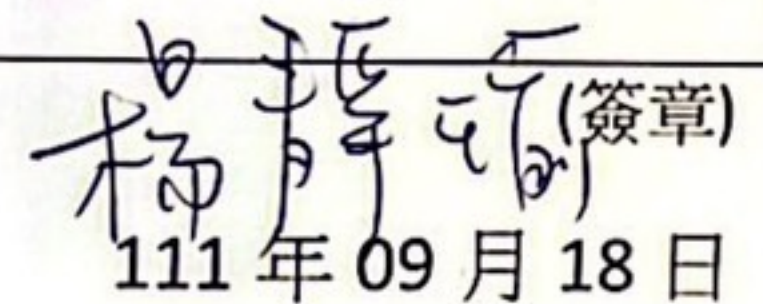 楊靜瑀(簽章)
111 年 09 月 18 日